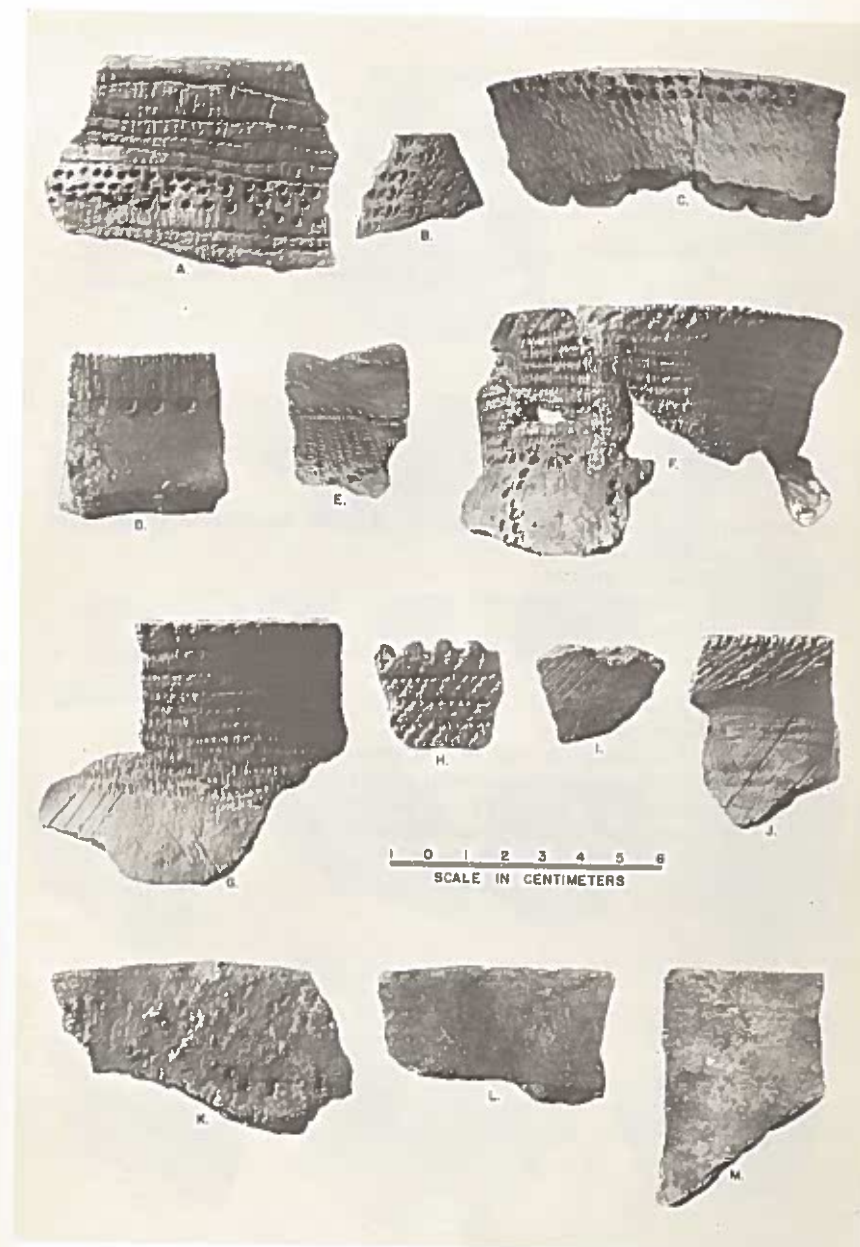 A.
B.
C.
D.
E.
F.
G.
H.
I.
J.
1 0 1 2 3 4 5 6
SCALE IN CENTIMETERS
K.
L.
M.